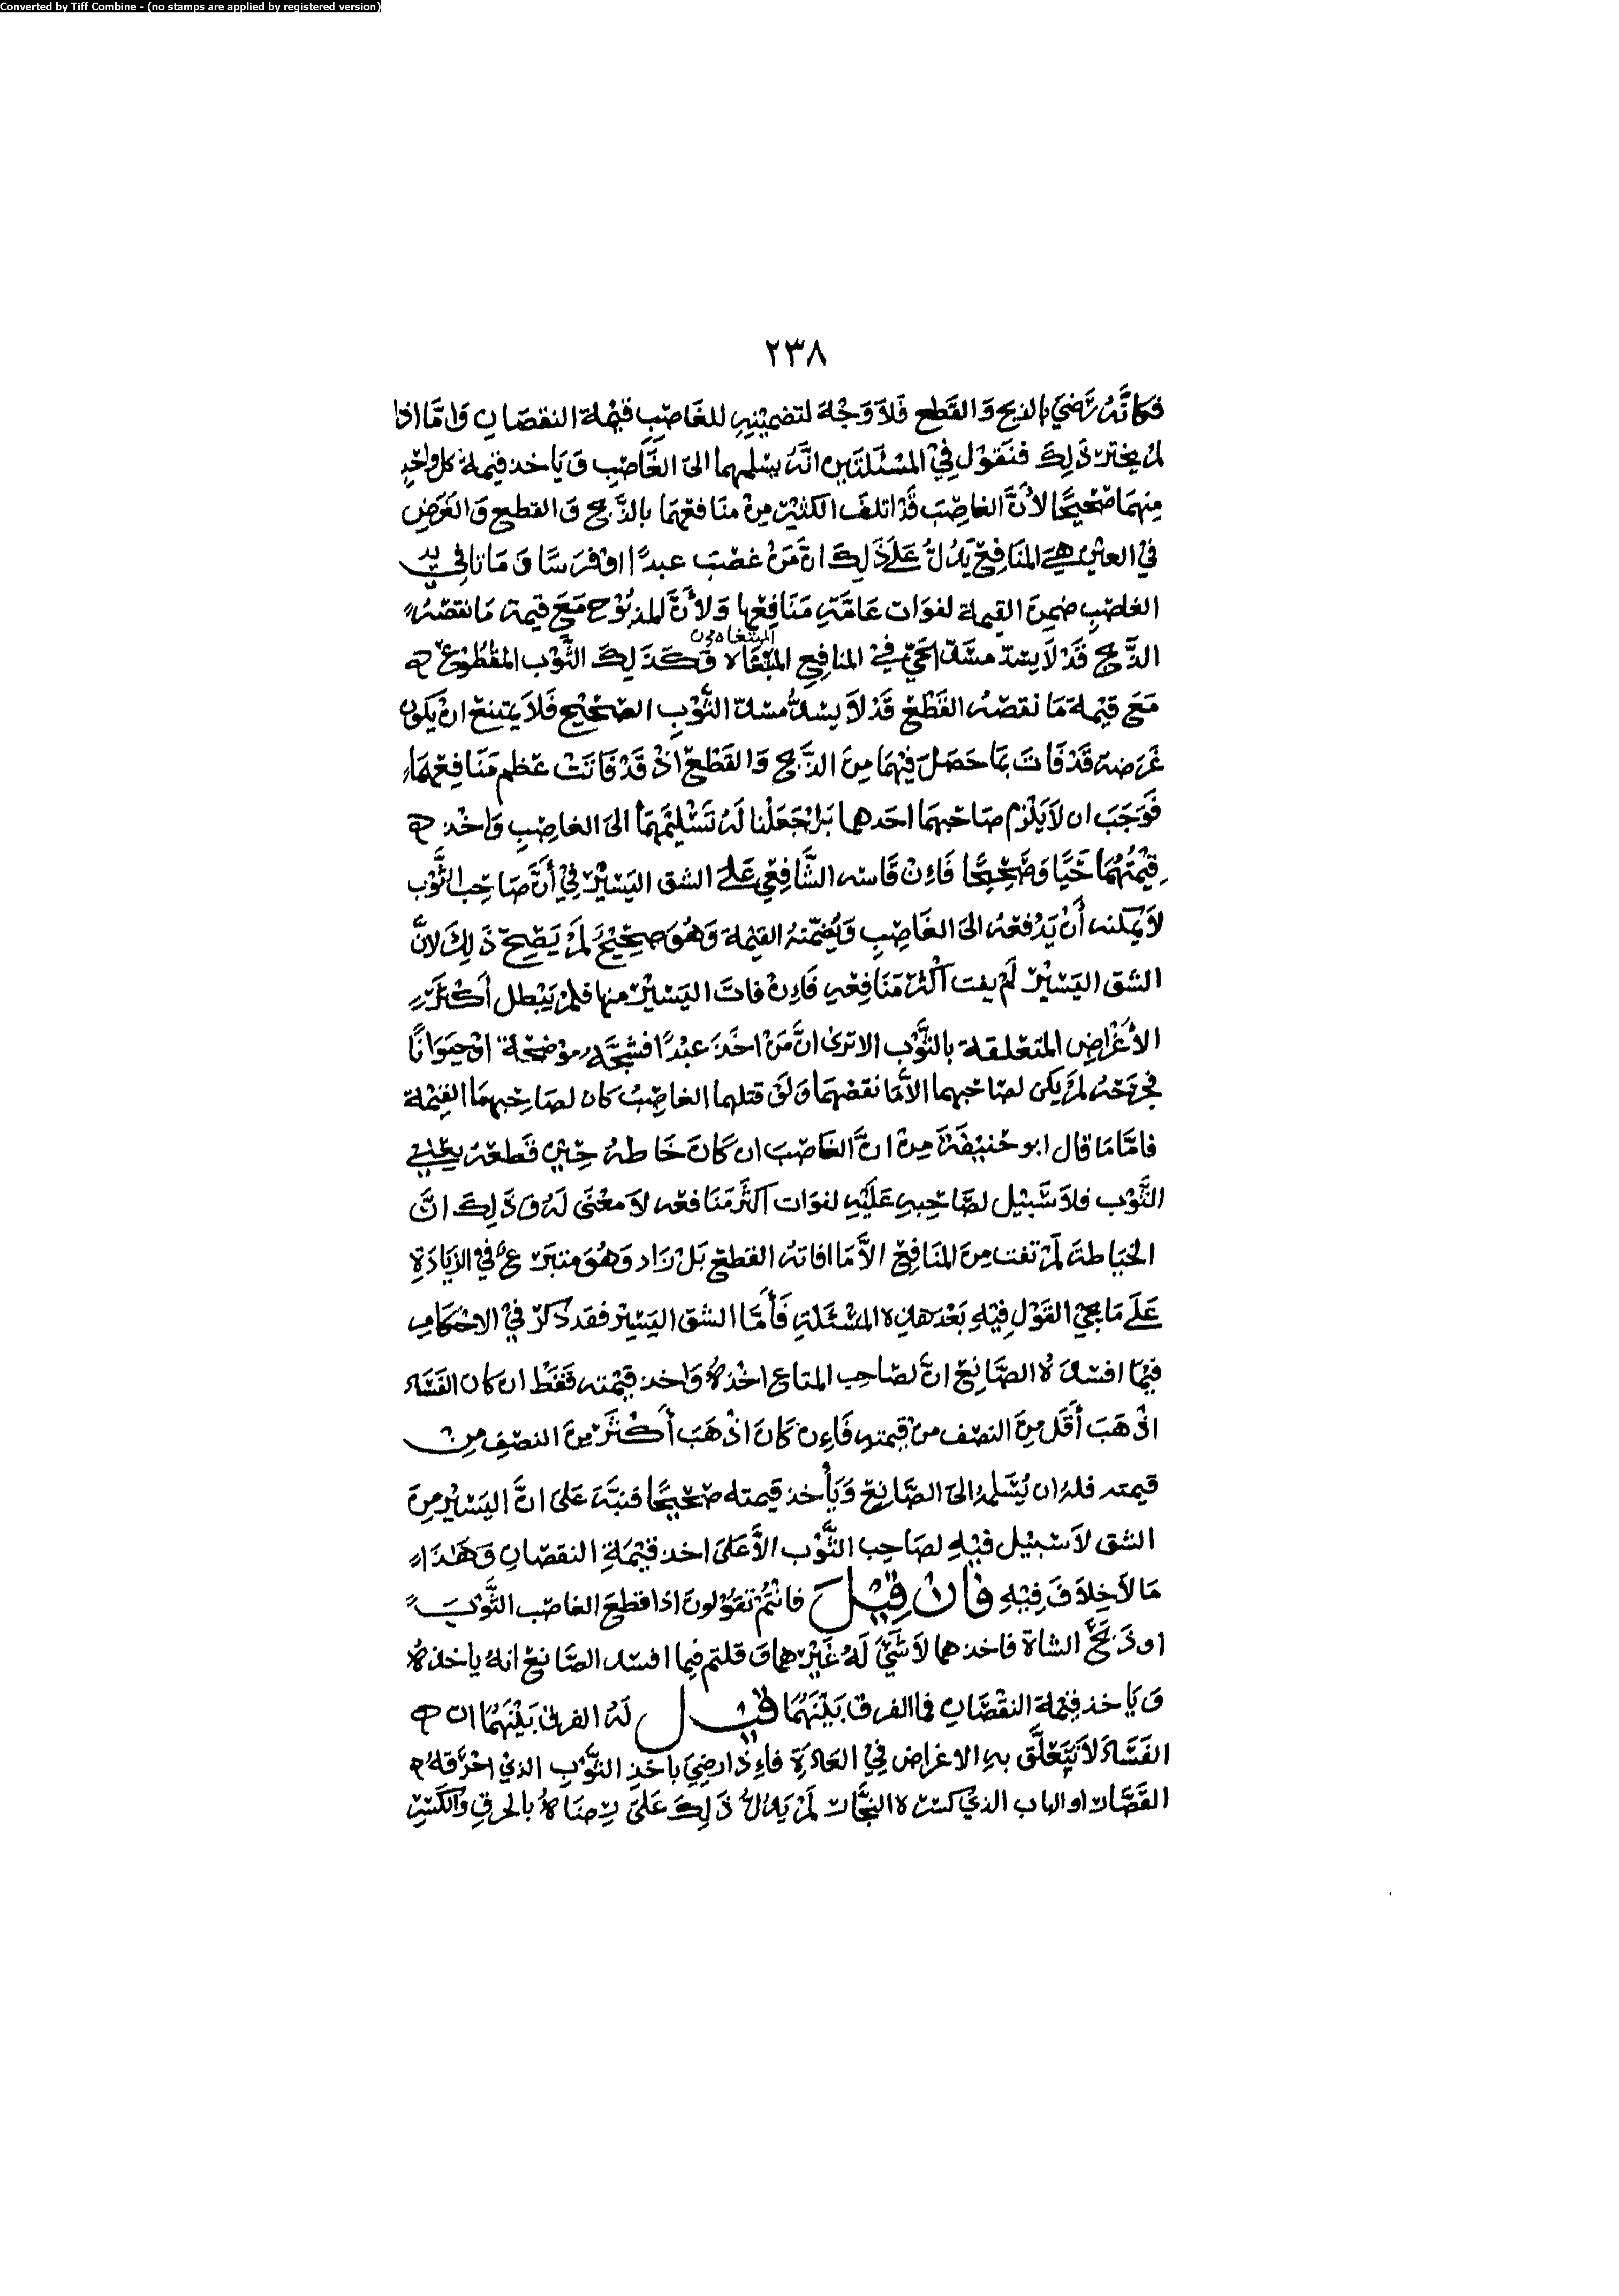 Converted by Tiff Combine - (no stamps are applied by registered version)
٢٣٨
فكانَّهُ رَضيَ بالذبح وَالقَطع فَلاَ وَجْهَ لتضمِيْنِهِ للغَاصِبِ قيْمة النقصَانِ وَامَّا اذا
لم يختر ذَلِكَ فنَقوْل فِيْ المسْئلَتَين انَّهُ يسْلمهما الىَ الغَاصِبِ وَيَاخذ قيمة كل واحِدٍ
مِنهمَا صَحِيحًا لأنَّ الغاصِبَ قدْ اتلفَ الكثيْر مِنْ منَافعهمَا بالذَّبح وَالقطع وَالغَرَضِ
في العيْن هِيَ المنَافِعْ يَدُلُّ عَلَى ذَلِكَ انَّ مَنْ غصَبَ عبدًا اوْ فَرَسًا وَمَاتا في يد
الغاصِبِ ضمِنَ القيمة لفوَات عَامَّةِ مَنَافِعِها وَلأنَّ المذبُوْح مَعَ قيمة مَا نقصَهُ
الذَّبح قدْ لاَ يسَدّ مسَدّ الحَيّ فيْ المنَافِعِ المبتَغَاه وَكَذَلِكَ الثَّوْب المقْطُوْع
المبتغاه
مَعَ قيْمَة مَا نقصَهُ القَطْعْ قدْ لاَ يسدُّ مسَدّ الثَّوْبِ الصَّحِيْحِ فَلاَ يمتنع انْ يَكون
غَرَضه قَدْ فَاتَ بمَا حَصَلَ فيْهمَا مِنَ الذَّبح وَالقَطْعْ اذْ قَدْ فَاتَتْ عظم مَنَافِعهمَا
فَوَجَبَ ان لاَ يَلْزم صَاحبهمَا احَدهما بَلْ جَعَلْنا لَهُ تَسْلِيْمَهُمَا الىَ الغاصِبِ وَاخْذ
قِيْمَتُهُمَا حَيًّا وَصَحِيْحًا فَاءِنْ قَاسه الشَّافِعِي عَلَىَ الشق اليَسيْرْ فيْ أنَّ صَاحِب الثَّوْب
لاَ يمكنه أنْ يَدْفعهُ الىَ الغَاصِبِ وَيُضَمِّنهُ القيْمة وَهُوَ صحِيْحْ لَمْ يَصِحّ ذَلِكَ لانَّ
الشق اليَسيْرْ لَمْ يفت أكثر مَنَافِعِهِ فَاءِنْ فاتَ اليَسيْرْ منها فلمْ يَبْطل أكْثَرْ
الأغْرَاضِ المتَعَلقة بالثَّوْب الا ترى انَّ مَنْ اخَذَ عبْدًا فشجَّهُ موْضحَة اوْ حيَوَانًا
فجرَحَهُ لَمْ يكن لصَاحِبهما الاَّ مَا نقصهمَا وَلَوْ قتلهما الغاصِبْ كان لصَاحِبهمَا القِيْمَة
فامَّا مَا قال ابو حَنيْفَةَ مِنْ انَّ الغَاصِبَ ان كَانَ خَاطهُ حِيْنَ قَطعَهُ يعْني
الثَّوْب فلاَ سَّبيْل لصَّاحِبهِ عَلَيْهِ لفوَات أكثر مَنَافعه لاَ مَعْنَى لَهُ وَذَلِكَ انَّ
الخيَاطة لَمْ تفت مِنَ المنَافِعْ الاَّ مَا افاتهُ القطعْ بَلْ زَاد وَهُوَ متبَرّعْ في الزيَادَةِ
عَلَى مَا يجيْ القوْل فيْهِ بَعْدَ هذِه المسْئَلَةِ فَأمَّا الشق اليَسِيْر فقد ذكرْ فيْ الاحْكَام
فيْمَا افسَدَهُ الصَّانِعْ انَّ لصَاحِب المتاع اخْذهُ وَاخذ قيْمَته فَقَطْ ان كان الفسَاد
اذْهَبَ أقَل مِنَ النصْف منْ قيمتهِ فَاءِن كَانَ اذْهَبَ أكْثَرْ مِنَ النصْفِ مِنْ
قيمته فلهُ ان يُسَلِمُهُ الىَ الصَّانِعْ وَيَأخذ قيمته صَحِيْحًا فنبَّهَ عَلىَ انَّ اليَسيْر مِنَ
الشق لاَ سْبيْل فيْهِ لصَاحِب الثَّوْب الاَّ عَلىَ اخذ قيْمَةِ النقصَانِ وَهَذَا
مَا لاَ خِلاَفَ فِيْهِ فَانْ قِيْلَ فانْتُمْ تقوْلونَ اذا قطع الغاصب الثَّوْبَ
او ذَبحَ الشاة فاخذهما لاَ شَيْءَ لَهُ غَيْرْهما وَقلتم فيما افسَد الصَّانعْ انهُ يا خذهُ
وَيَاخذ قيْمة النقْصَان فما الفرق بَيْنَهُمَا قيْل لَهُ الفرق بَيْنَهُمَا ان
الفسَادَ لاَ تَتَعَلَّق بهِ الاغرَاض فيْ العَادَةِ فاءِذَا رضِيَ باخذِ الثَّوْبِ الذيْ اخْرَقهُ
القَصَّار او الباب الذيْ كسَرَه النجَّار لَمْ يَدُلّ ذَلِكَ عَلىَ رِضَاهُ بالخرقِ وَالكَسْرِ